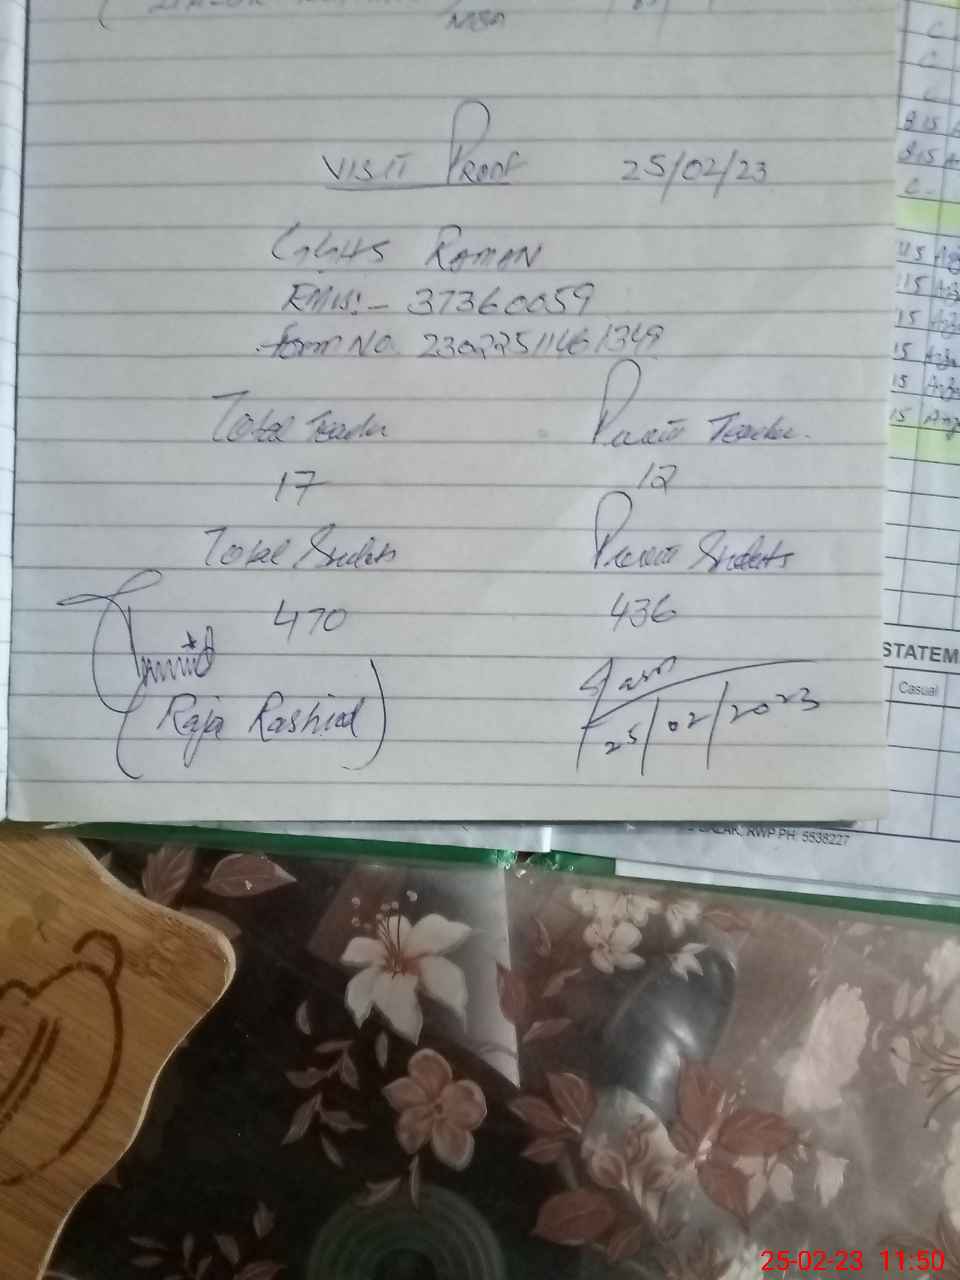 VISIT Proof 25/02/23
GGHS RAMAN
EMIS:- 37360059
form No. 23022511461349
Total Teacher Present Teacher.
17 12
Total Students Present Students
470 436
(Raja Rashid) 25/02/2023
C
C
C
815
815 A
C-
45
115
15
15
15
15
STATEM
Casual
RWP PH: 5538227
25-02-23 11:50